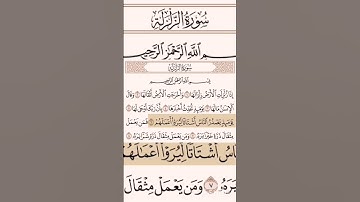 سُورَةُ الزَّلْزَلَةِ
بِسْمِ اللَّهِ الرَّحْمَٰنِ الرَّحِيمِ
سُورَةُ الزَّلْزَلَةِ
بِسْمِ اللَّهِ الرَّحْمَٰنِ الرَّحِيمِ
إِذَا زُلْزِلَتِ الْأَرْضُ زِلْزَالَهَا ١ وَأَخْرَجَتِ الْأَرْضُ أَثْقَالَهَا ٢ وَقَالَ
الْإِنسَانُ مَا لَهَا ٣ يَوْمَئِذٍ تُحَدِّثُ أَخْبَارَهَا ٤ بِأَنَّ رَبَّكَ أَوْحَىٰ لَهَا ٥
يَوْمَئِذٍ يَصْدُرُ النَّاسُ أَشْتَاتًا لِّيُرَوْا أَعْمَالَهُمْ ٦ فَمَن يَعْمَلْ
مِثْقَالَ ذَرَّةٍ خَيْرًا يَرَهُ ٧ وَمَن يَعْمَلْ مِثْقَالَ ذَرَّةٍ شَرًّا يَرَهُ ٨
اسُ أَشْتَاتًا لِّيُرَوْا أَعْمَالَهُمْ
يَرَهُ ٧ وَمَن يَعْمَلْ مِثْقَالَ